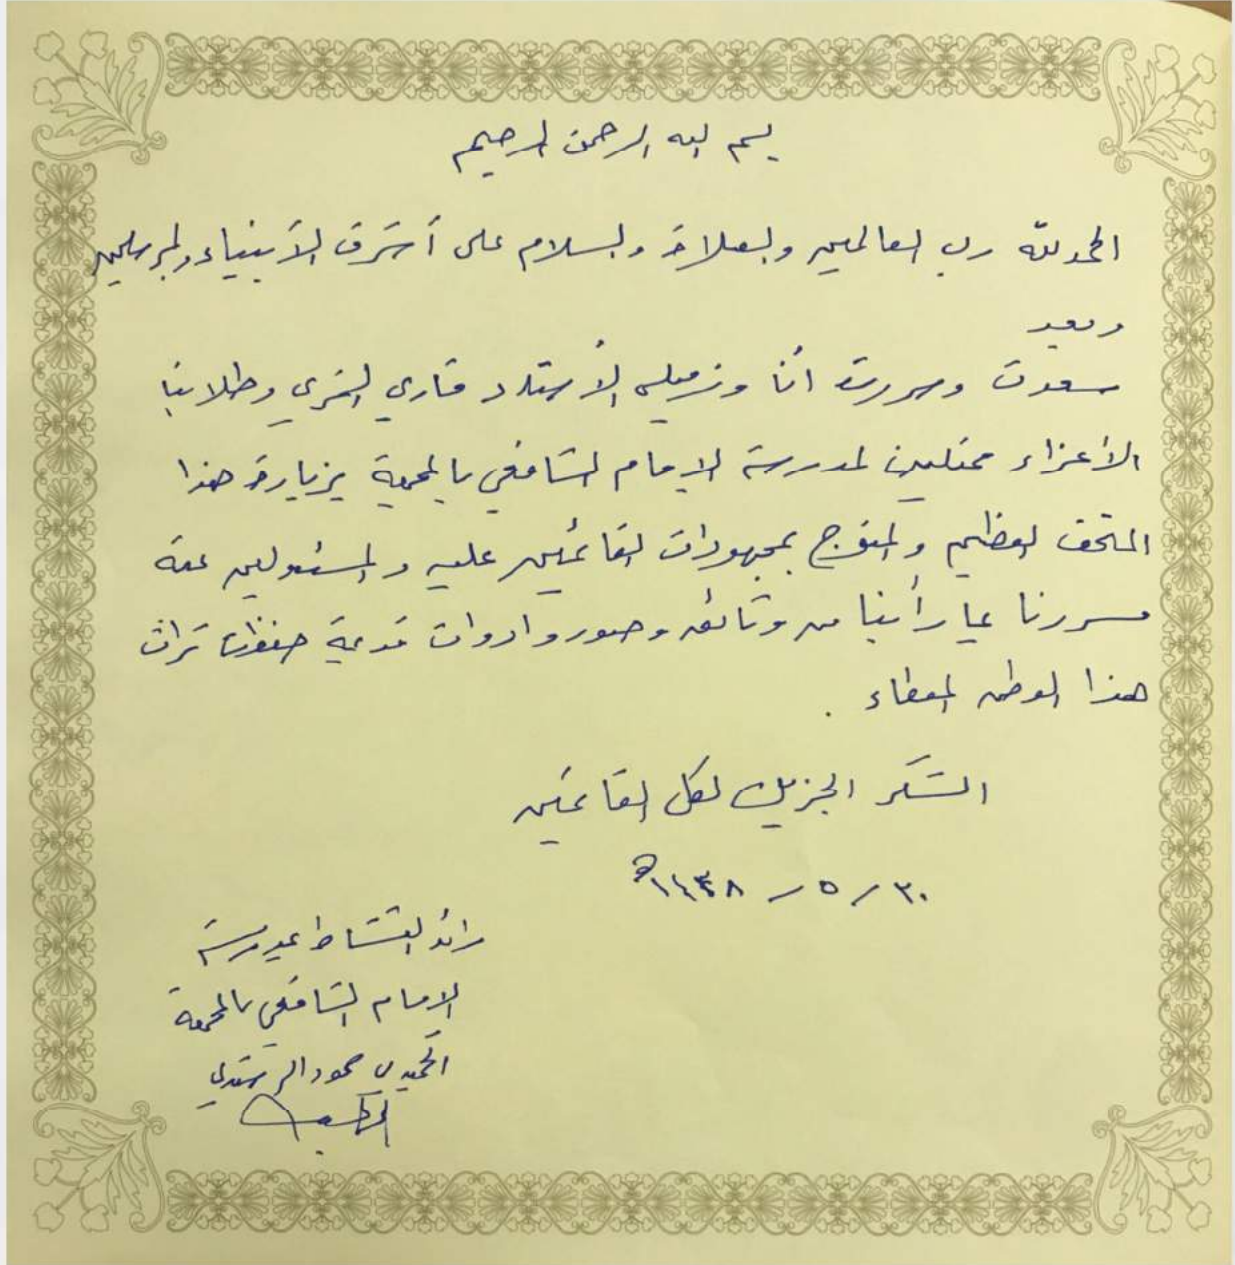 بسم الله الرحمن الرحيم
الحمد لله رب العالمين والصلاة والسلام على أشرف الأنبياء والمرسلين
وبعد
سعدت وسررت انا وزميلي الأستاذ قاري العنزي وطلابنا
الأعزاء ممثلين لمدرسة الإمام الشافعي بالمحمية بزيارة هذا
المتحف العظيم والمتوج بمجهودات القائمين عليه والمسئولين عنه
وسررنا بما رأينا من وثائق وصور وادوات قديمة حفظت تراث
هذا الوطن المعطاء .
الشكر الجزيل لكل القائمين
٣٠ / ٥ / ١٤٣٨ هـ
رائد النشاط بمدرسة
الإمام الشافعي بالمحمية
الحميدي حمود الرشيدي